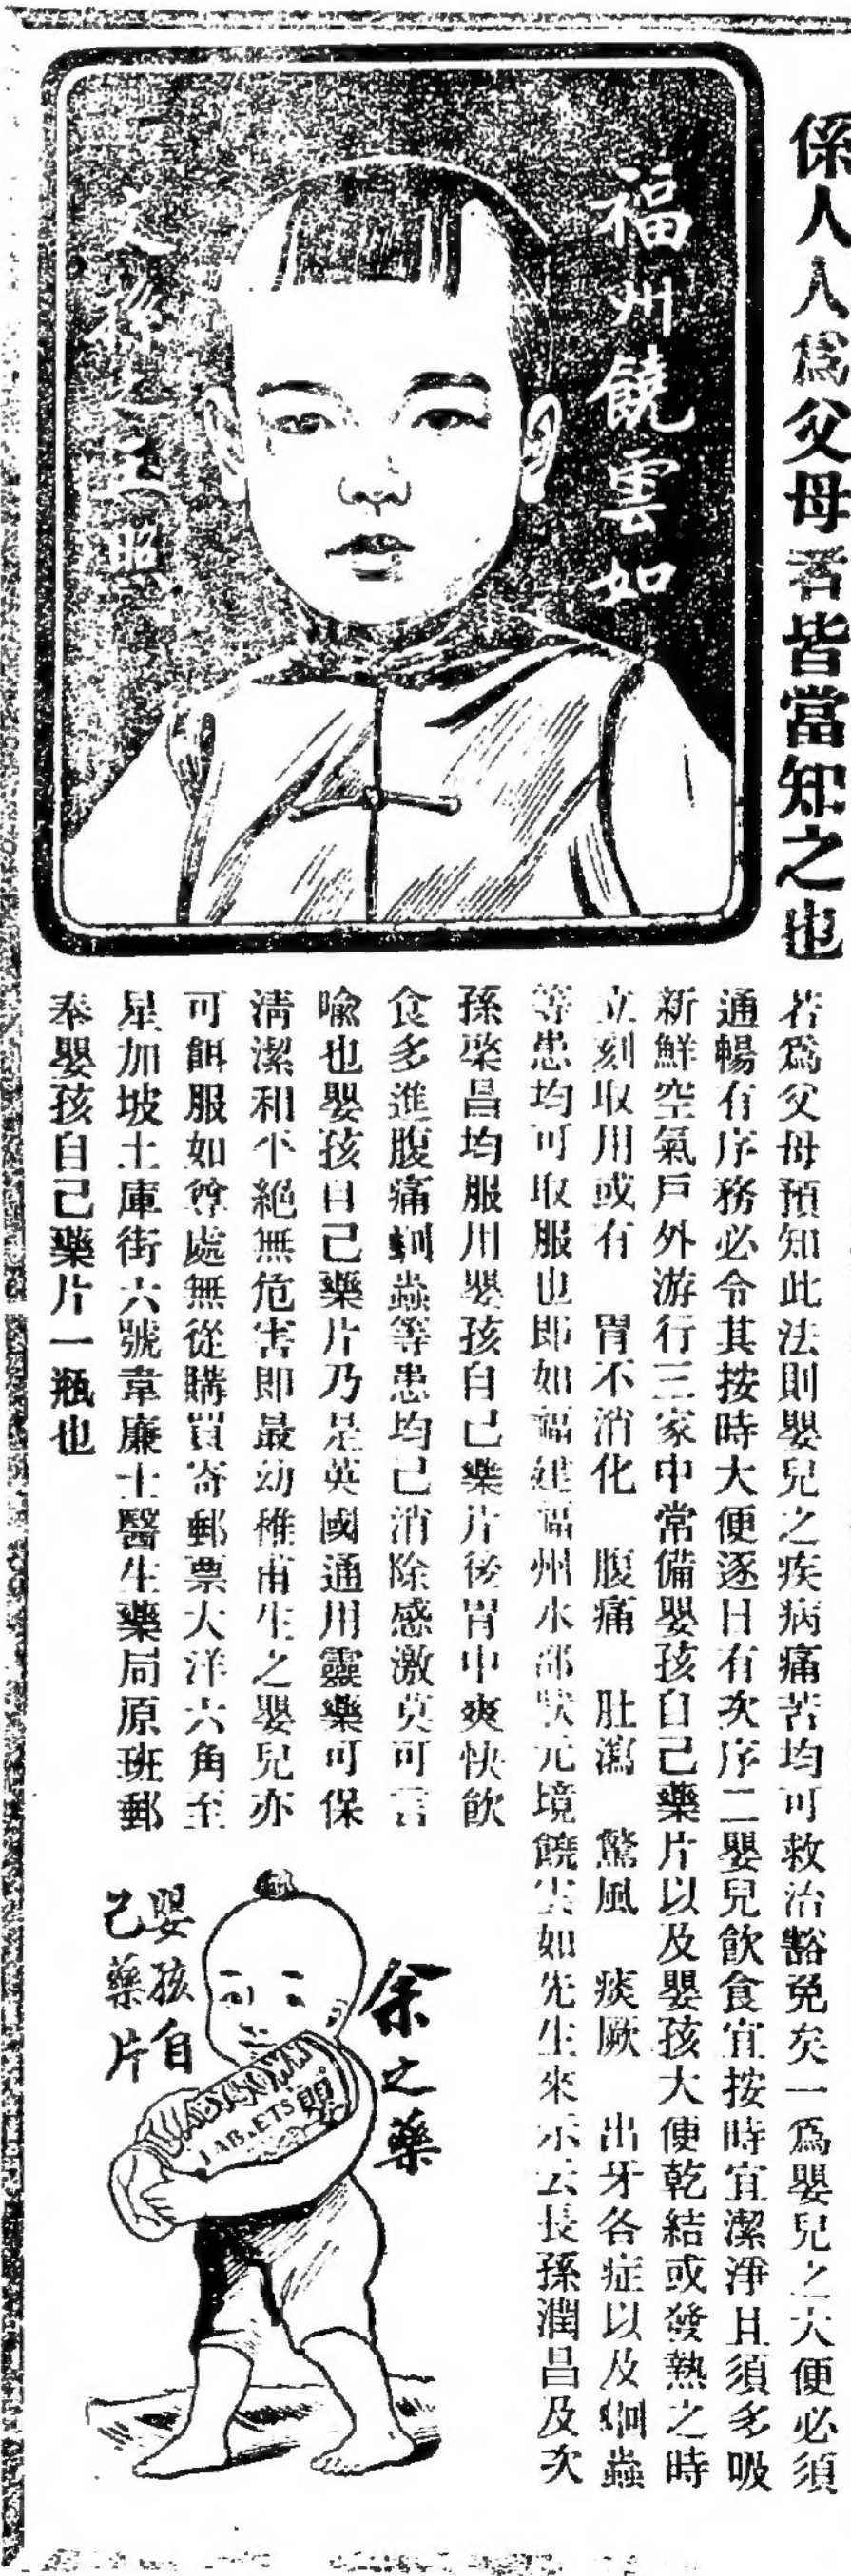 係人人爲父母者皆當知之也
福州饒雲如
文孫之玉照
若爲父母預知此法則嬰兒之疾病痛苦均可救治豁免矣一爲嬰兒之大便必須
通暢有序務必令其按時大便逐日有次序二嬰兒飲食宜按時宜潔淨且須多吸
新鮮空氣戶外游行三家中常備嬰孩自己藥片以及嬰孩大便乾結或發熱之時
立刻取用或有 胃不消化 腹痛 肚瀉 驚風 痰厥 出牙各症以及蛔蟲
等患均可取服也即如福建福州水部狀元境饒雲如先生來示云長孫潤昌及次
孫棨昌均服用嬰孩自己藥片後胃中爽快飲
食多進腹痛蛔蟲等患均已消除感激莫可言
喩也嬰孩自己藥片乃是英國通用靈藥可保
清潔和平絕無危害即最幼稚甫生之嬰兒亦
可餌服如尊處無從購買寄郵票大洋六角至
星加坡土庫街六號韋廉士醫生藥局原班郵
奉嬰孩自己藥片一瓶也
余之藥
BABY'S OWN
TABLETS
嬰孩自
己藥片